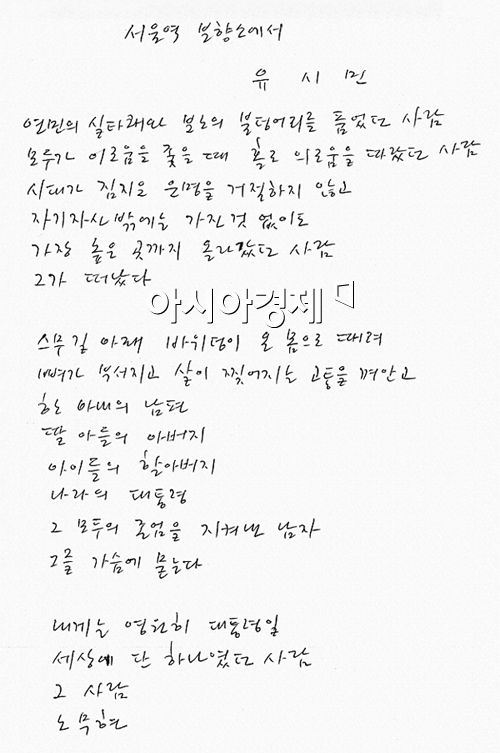 서울역 분향소에서
유 시 민
연민의 실타래와 분노의 불덩어리를 품었던 사람
모두가 이로움을 좇을 때 홀로 의로움을 따랐던 사람
시대가 짐지운 운명을 거절하지 않고
자기자신밖에는 가진것 없이도
가장 높은 곳까지 올라갔던 사람
그가 떠났다
아시아경제
스무길 아래 바위덩이 온 몸으로 때려
뼈가 부서지고 살이 찢어지는 고통을 껴안고
한 아내의 남편
딸 아들의 아버지
아이들의 할아버지
나라의 대통령
그 모두의 존엄을 지켜낸 남자
그를 가슴에 묻는다
내게는 영원히 대통령일
세상에 단 하나였던 사람
그 사람
노무현